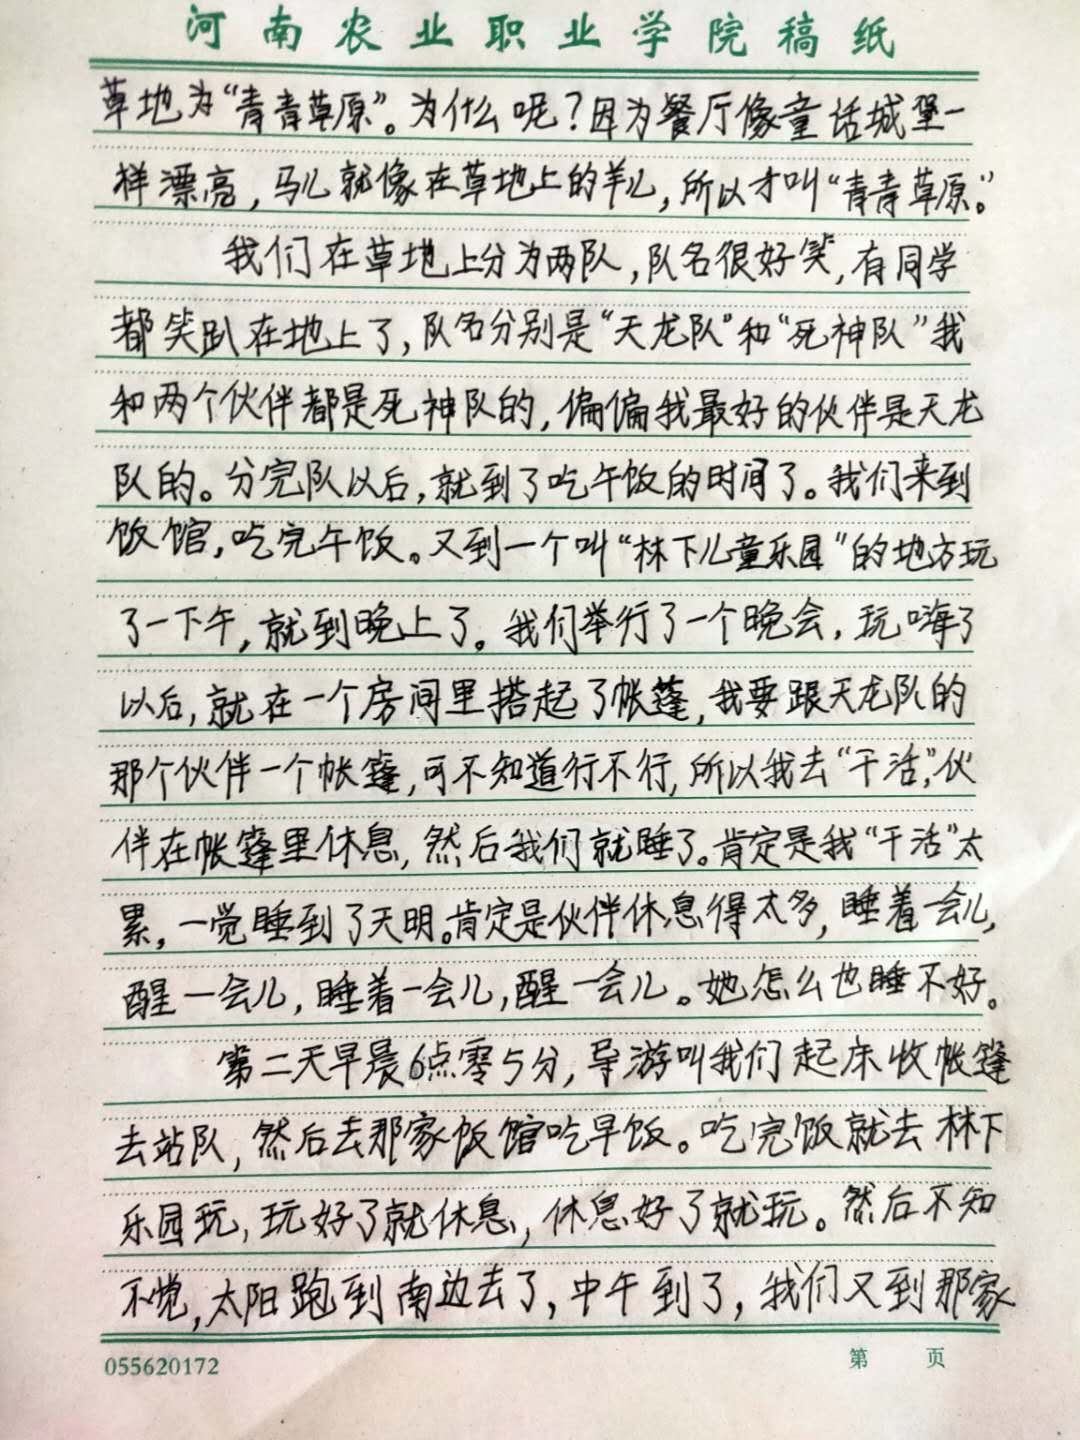 河南农业职业学院稿纸
草地为“青青草原”。为什么呢？因为餐厅像童话城堡一
样漂亮，马儿就像在草地上的羊儿，所以才叫“青青草原。”
我们在草地上分为两队，队名很好笑，有同学
都笑趴在地上了，队名分别是“天龙队”和“死神队”我
和两个伙伴都是死神队的，偏偏我最好的伙伴是天龙
队的。分完队以后，就到了吃午饭的时间了。我们来到
饭馆，吃完午饭。又到一个叫“林下儿童乐园”的地方玩
了一下午，就到晚上了。我们举行了一个晚会，玩嗨了
以后，就在一个房间里搭起了帐蓬，我要跟天龙队的
那个伙伴一个帐篷，可不知道行不行，所以我去“干活”，伙
伴在帐篷里休息，然后我们就睡了。肯定是我“干活”太
累，一觉睡到了天明。肯定是伙伴休息得太多，睡着一会儿，
醒一会儿，睡着一会儿，醒一会儿。她怎么也睡不好。
第二天早晨6点零5分，导游叫我们起床收帐篷
去站队，然后去那家饭馆吃早饭。吃完饭就去林下
乐园玩，玩好了就休息，休息好了就玩。然后不知
不觉，太阳跑到南边去了，中午到了，我们又到那家
055620172
第 页